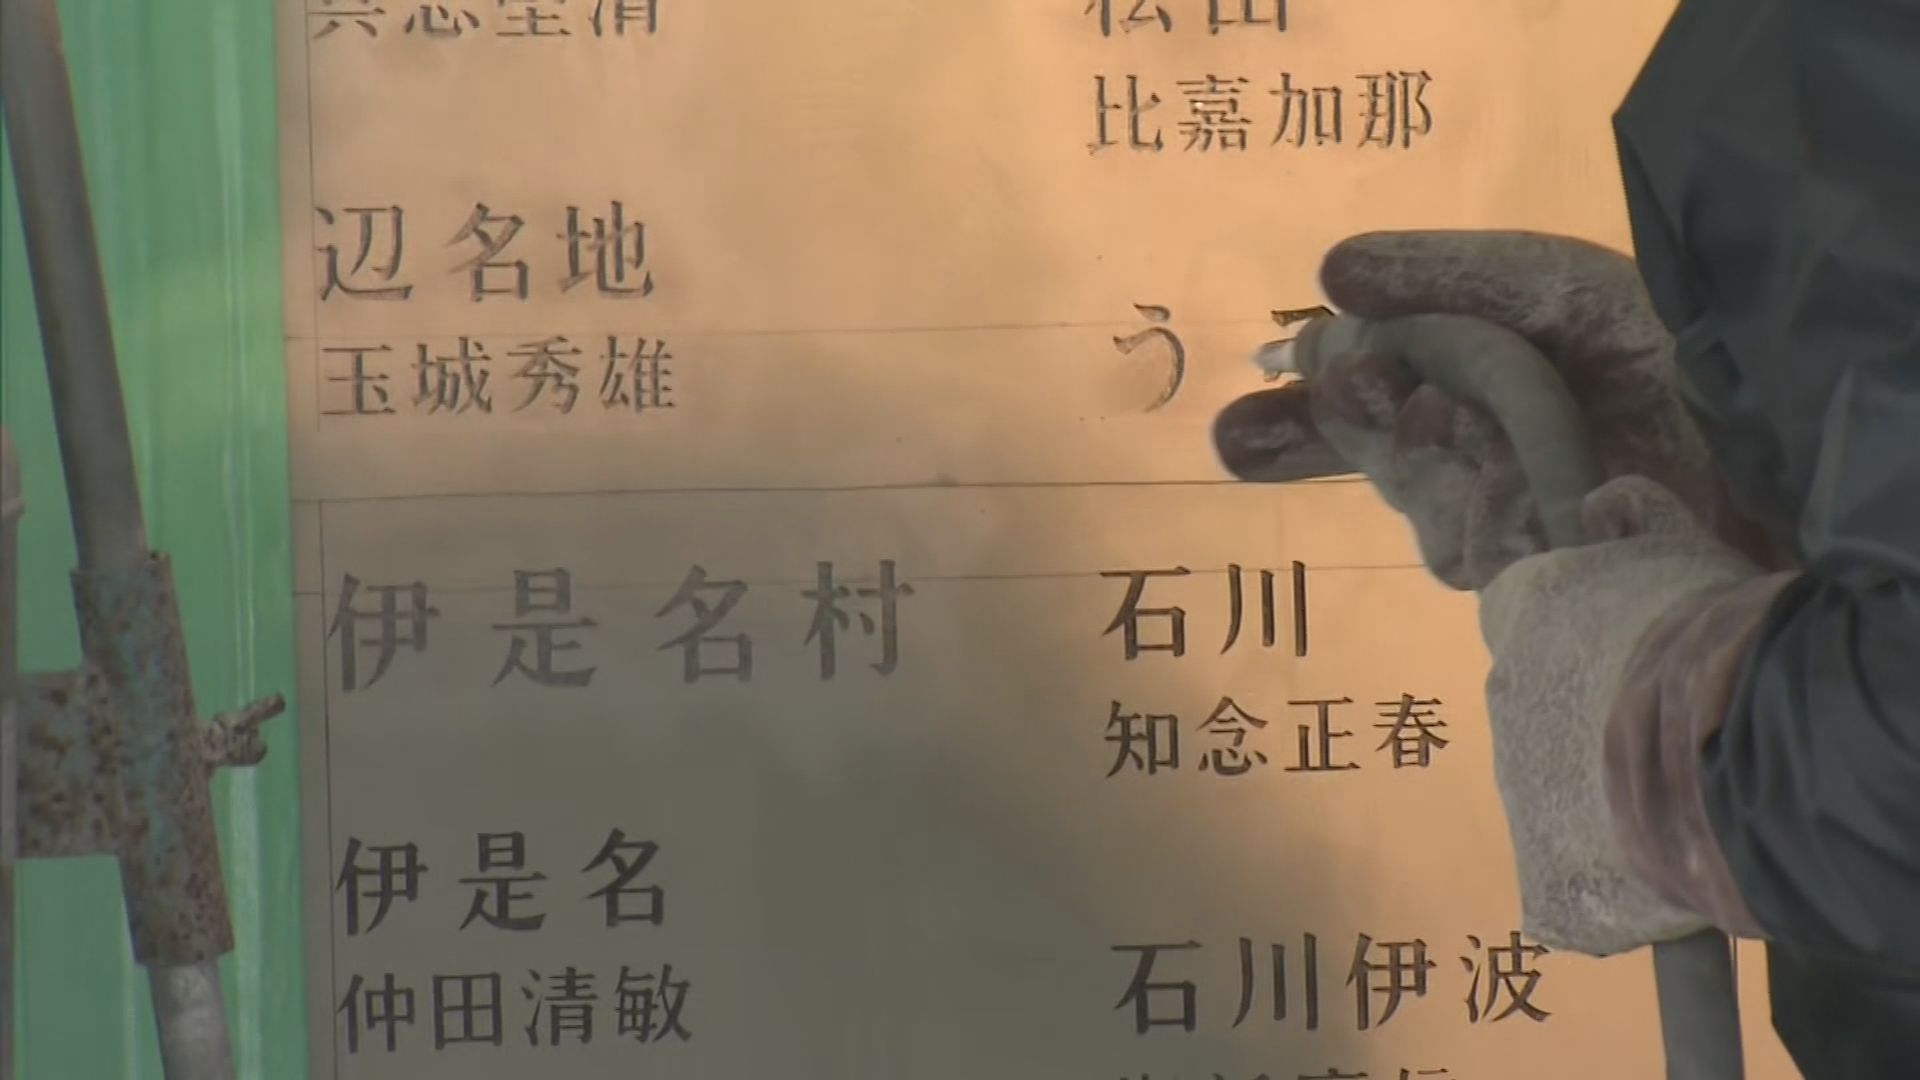 松田
比嘉加那
辺名地
玉城秀雄
う
伊是名村
石川
知念正春
伊是名
仲田清敏
石川伊波